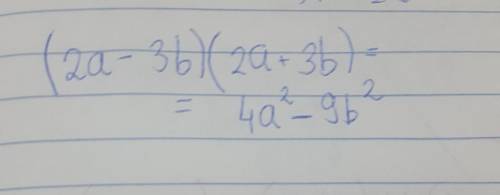 (2a - 3b)(2a + 3b) =
= 4a² - 9b²